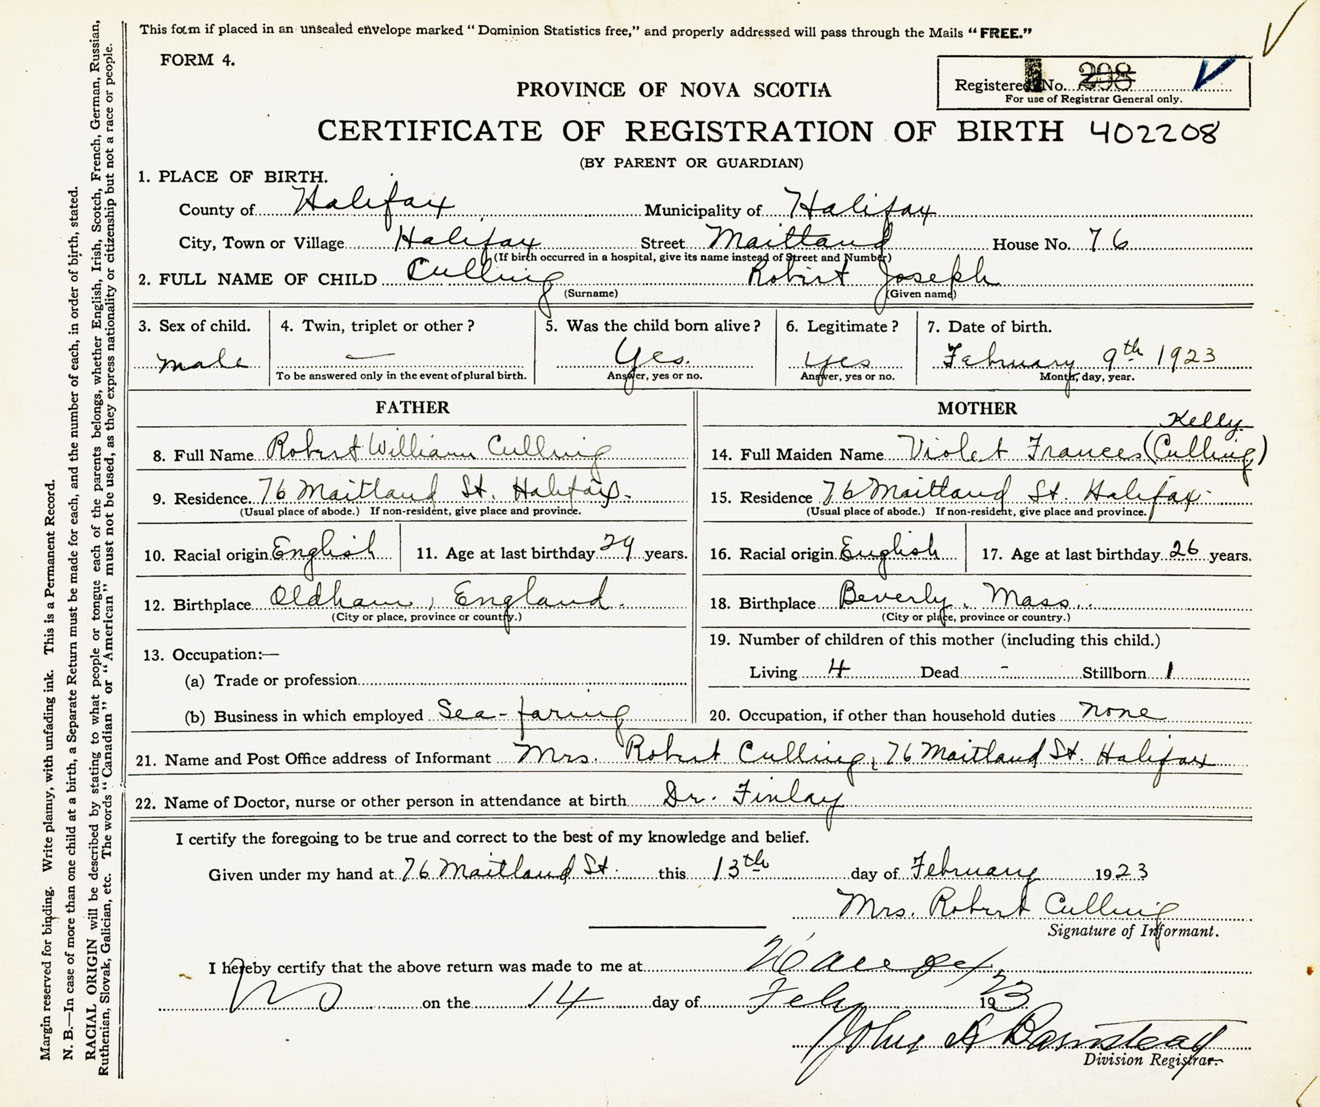 This form if placed in an unsealed envelope marked "Dominion Statistics free," and properly addressed will pass through the Mails "FREE."
FORM 4.
Registered No. 298
For use of Registrar General only.
PROVINCE OF NOVA SCOTIA
CERTIFICATE OF REGISTRATION OF BIRTH 402208
(BY PARENT OR GUARDIAN)
1. PLACE OF BIRTH.
County of Halifax Municipality of Halifax
City, Town or Village Halifax Street Maitland House No. 76
(If birth occurred in a hospital, give its name instead of Street and Number)
2. FULL NAME OF CHILD Culling Robert Joseph
(Surname) (Given name)
3. Sex of child. 4. Twin, triplet or other? 5. Was the child born alive? 6. Legitimate? 7. Date of birth.
male — Yes. yes February 9th 1923
To be answered only in the event of plural birth. Answer, yes or no. Answer, yes or no. Month, day, year.
FATHER
8. Full Name Robert William Culling
9. Residence 76 Maitland St. Halifax.
(Usual place of abode.) If non-resident, give place and province.
10. Racial origin English 11. Age at last birthday 29 years.
12. Birthplace Oldham, England.
(City or place, province or country.)
13. Occupation:—
(a) Trade or profession
(b) Business in which employed Sea-faring
MOTHER
Kelly
14. Full Maiden Name Violet Frances (Culling)
15. Residence 76 Maitland St. Halifax.
(Usual place of abode.) If non-resident, give place and province.
16. Racial origin English 17. Age at last birthday 26 years.
18. Birthplace Beverly, Mass.
(City or place, province or country.)
19. Number of children of this mother (including this child.)
Living 4 Dead - Stillborn 1
20. Occupation, if other than household duties none
21. Name and Post Office address of Informant Mrs. Robert Culling, 76 Maitland St. Halifax
22. Name of Doctor, nurse or other person in attendance at birth Dr. Finlay
I certify the foregoing to be true and correct to the best of my knowledge and belief.
Given under my hand at 76 Maitland St. this 13th day of February 1923
Mrs. Robert Culling
Signature of Informant.
I hereby certify that the above return was made to me at Halifax
NS on the 14 day of Feby 1923
John A Barnstead
Division Registrar.
Margin reserved for binding. Write plainly, with unfading ink. This is a Permanent Record.
N. B.—In case of more than one child at a birth, a Separate Return must be made for each, and the number of each, in order of birth, stated.
RACIAL ORIGIN will be described by stating to what people or tongue each of the parents belongs, whether English, Irish, Scotch, French, German, Russian,
Ruthenian, Slovak, Galician, etc. The words "Canadian" or "American" must not be used, as they express nationality or citizenship but not a race or people.